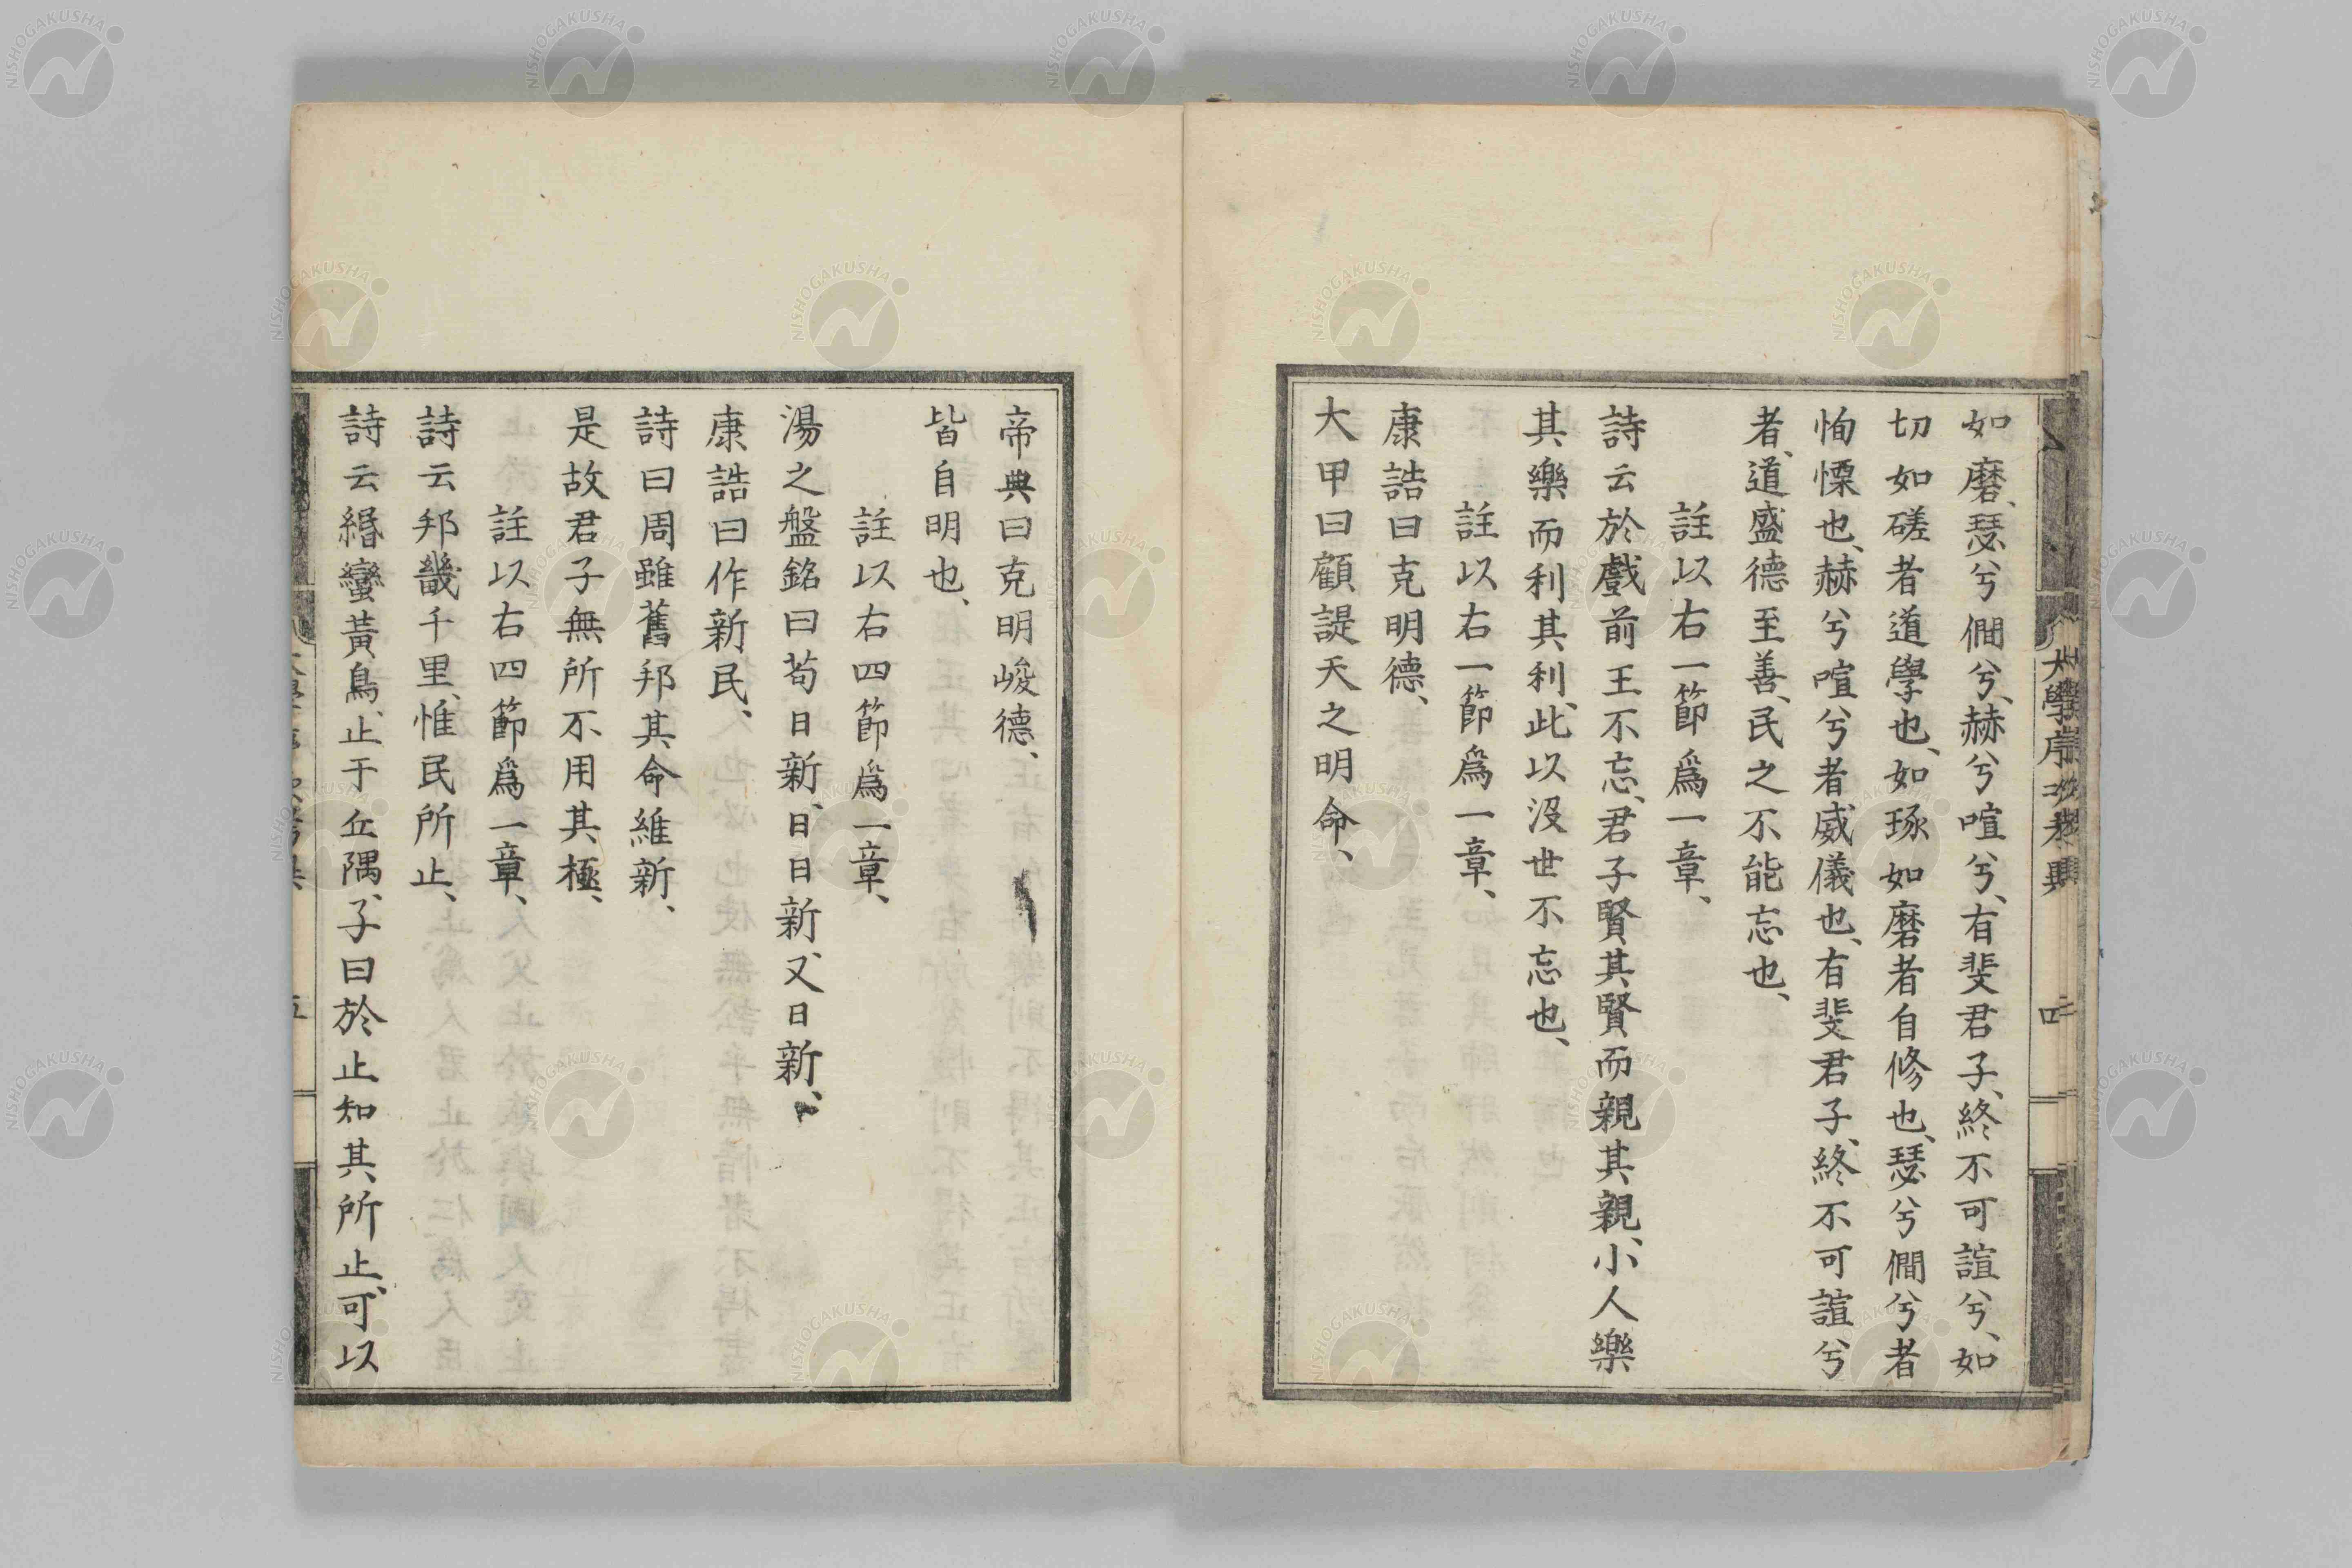 如磨、瑟兮僩兮、赫兮喧兮、有斐君子、終不可諠兮、如
切如磋者道學也、如琢如磨者自修也、瑟兮僩兮者
恂慄也、赫兮喧兮者威儀也、有斐君子、終不可諠兮
者、道盛德至善、民之不能忘也、
註以右一節爲一章、
詩云於戲前王不忘、君子賢其賢而親其親、小人樂
其樂而利其利、此以沒世不忘也、
註以右一節爲一章、
康誥曰克明德、
大甲曰顧諟天之明命、
帝典曰克明峻德、
皆自明也、
註以右四節爲一章、
湯之盤銘曰苟日新、日日新、又日新、
康誥曰作新民、
詩曰周雖舊邦其命維新、
是故君子無所不用其極、
註以右四節爲一章、
詩云邦畿千里、惟民所止、
詩云緡蠻黃鳥、止于丘隅、子曰於止知其所止、可以
大學序次考異
四
NISHOGAKUSHA